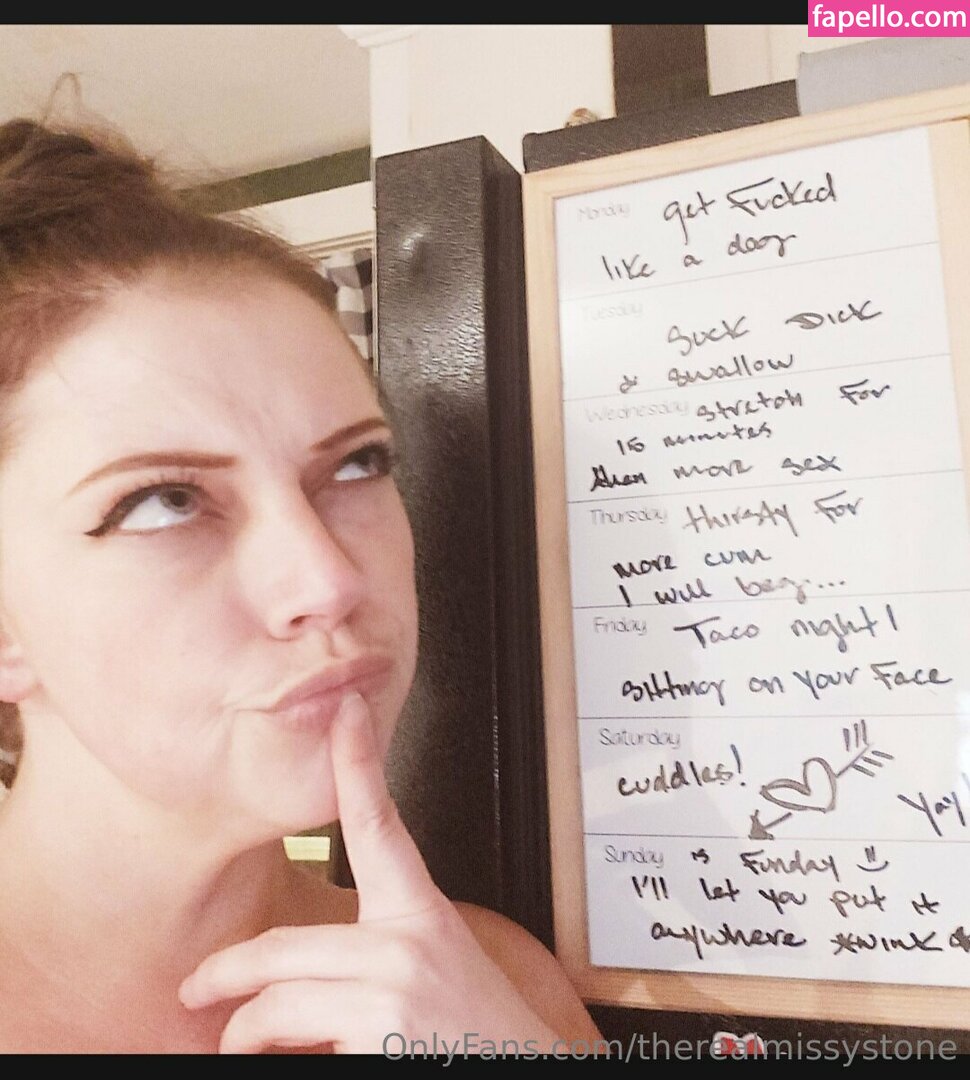 fapello.com
Monday get Fucked
like a dog
Tuesday
Suck Dick
& swallow
Wednesday stretch For
15 minutes
then more sex
Thursday thirsty For
more cum
I will beg...
Friday Taco night!
sitting on your Face
Saturday
cuddles!
Yay!
Sunday is Funday
I'll let you put it
anywhere *wink*
OnlyFans.com/therealmissystone